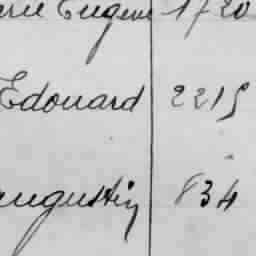 Eugène 1720
Edouard 2215
Augustin 834